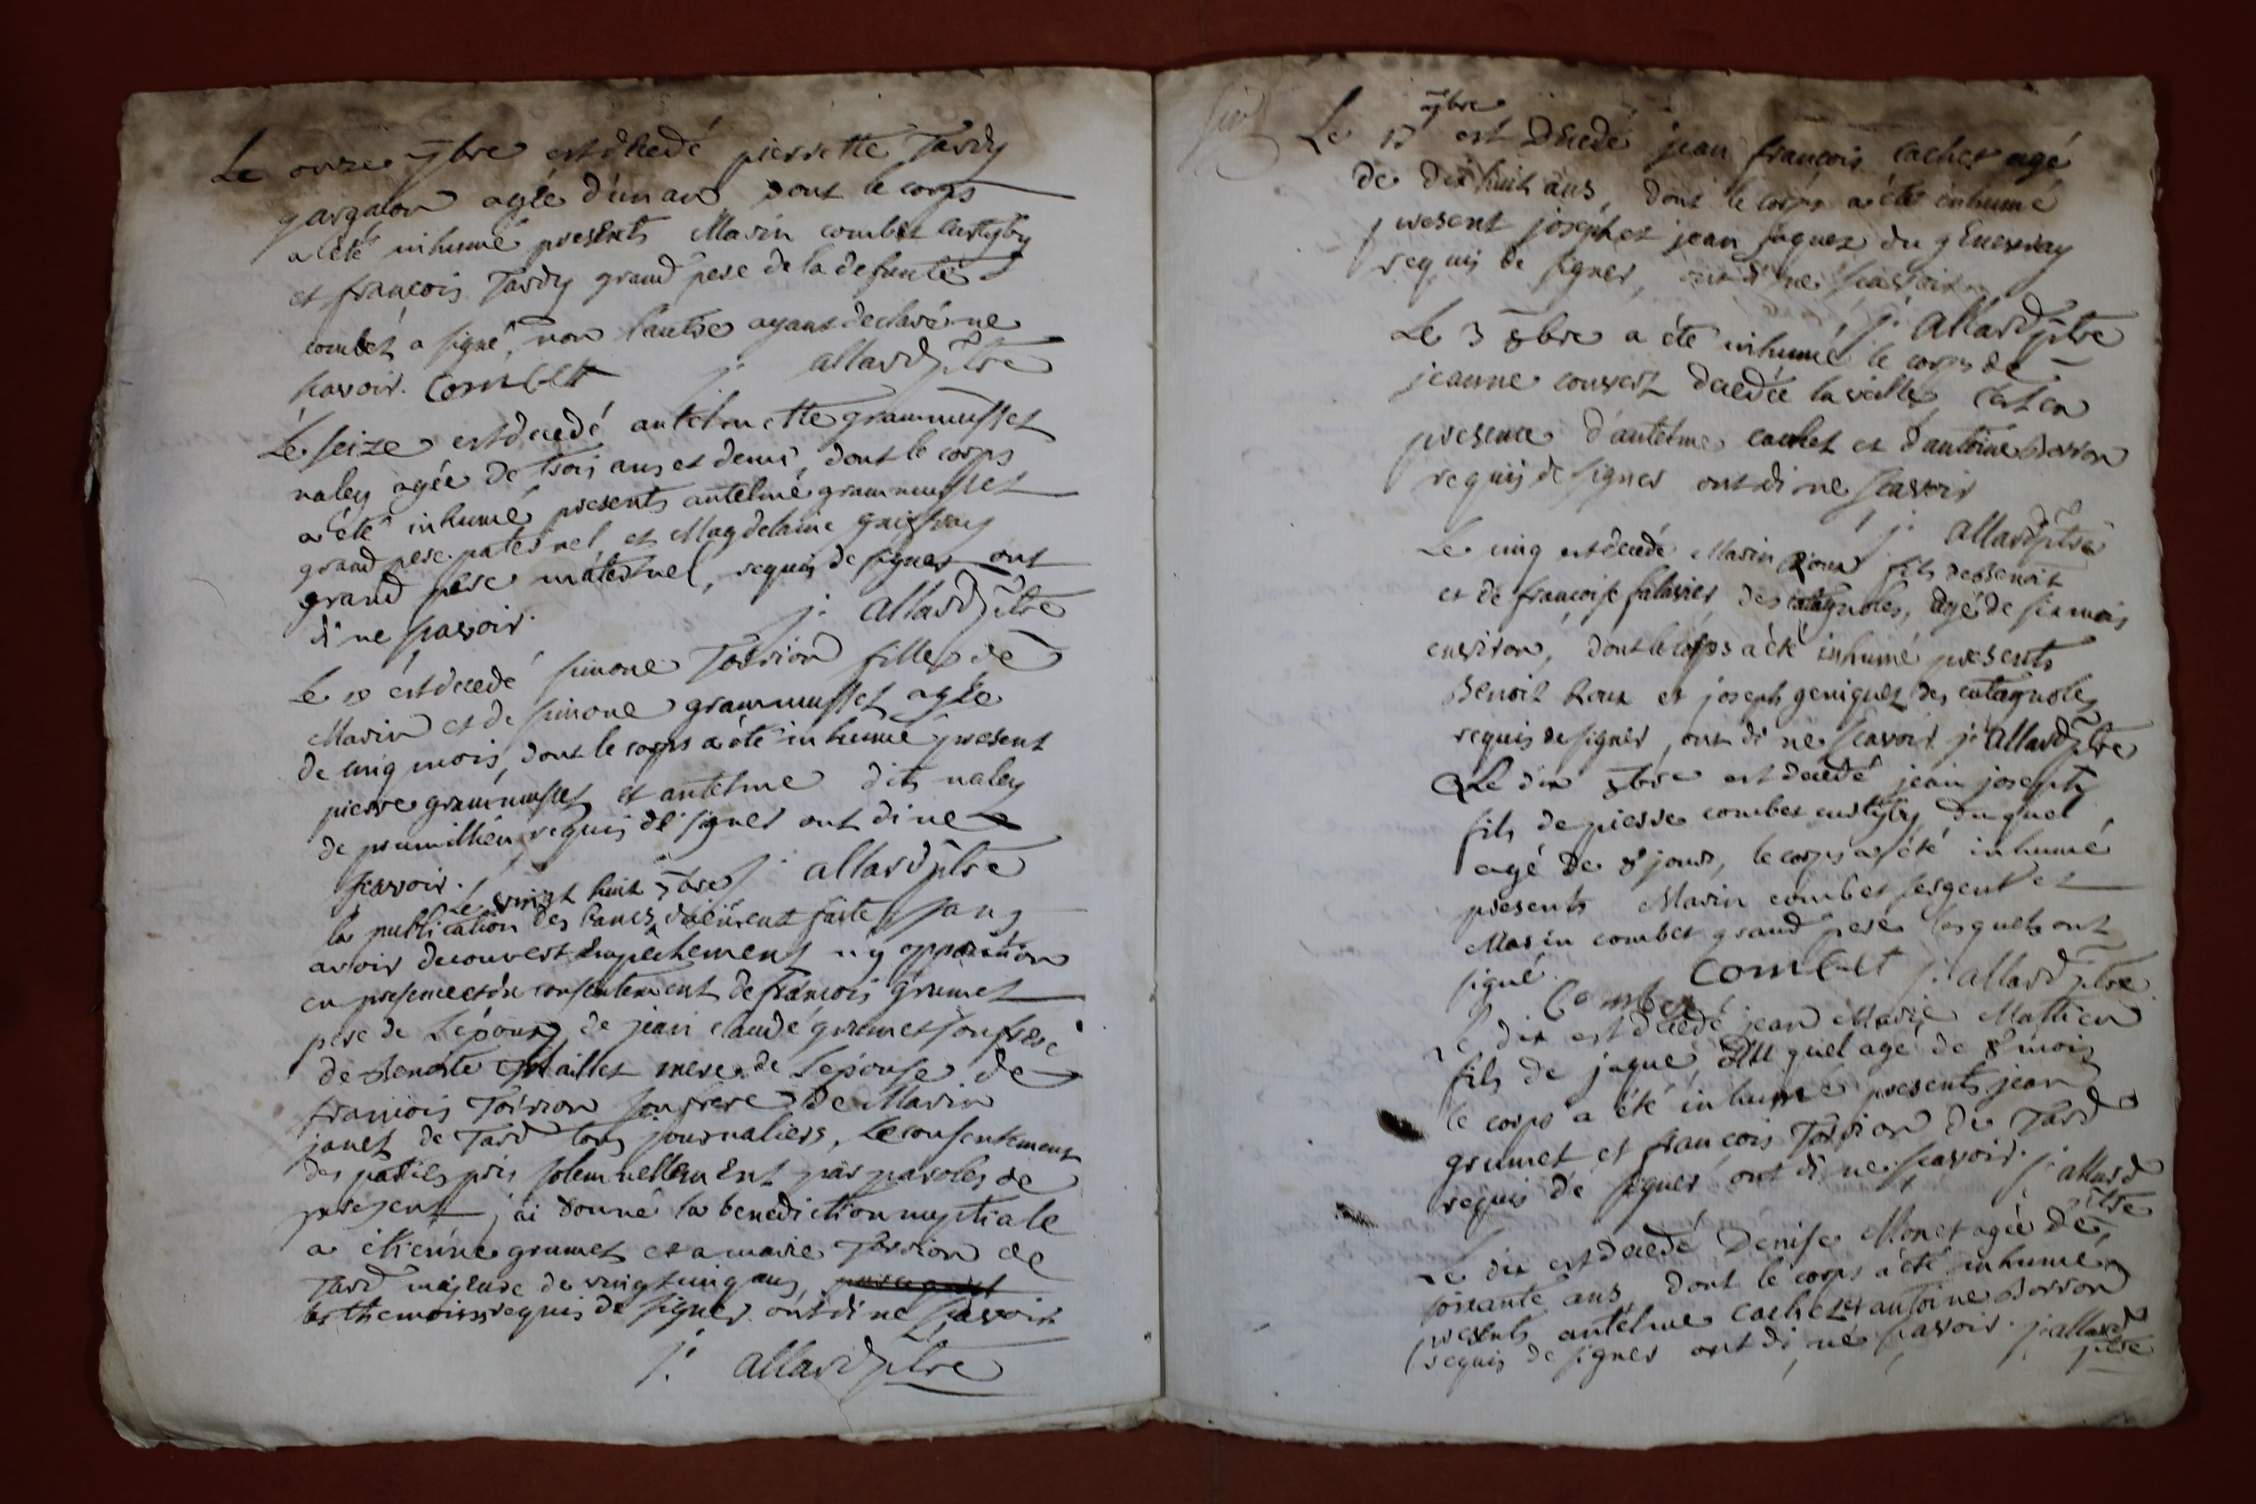 Le onze 7bre est décédé pierrette Tardy
gargalon agée d'un an dont le corps
a été inhumé presents Marin combet
et françois Tardy grand pere de la defunte
combet a signé, non l'autre ayant declaré ne
scavoir. Combet j. allard ptre
Le seize est decedé antelmette grammusset
naley agée de trois ans et demi, dont le corps
a été inhumé presents antelme grammusset
grand pere paternel et Magdelaine
grand pere maternel, requis de signer ont
di ne scavoir. j. allard ptre
Le est decedé simone Torrion fille de
Marin et de simone grammusset agée
de cinq mois, dont le corps a été inhumé present
pierre grammusset et antelme dit naley
de premillieu requis de signer ont di ne
scavoir. j. allard ptre
Le vingt huit 7bre
la publication des bancs duement faite sans
avoir decouvert empechement ny opposition
en presence et du consentement de françois grumet
pere de L'époux, de jean claude grumet son frere
de Benoite maillet mere de L'épouse de
françois Torrion son frere de Marin
janet de Tard tous journaliers, Le consentement
des parties pris solemnellement par paroles de
present j'ai donné la benediction nuptiale
a étienne grumet et a marie Torrion de
Tard majeure de vingt cinq ans
les themoins requis de signer ont di ne scavoir
j. allard ptre
Le 17 7bre est Decedé jean françois cachet agé
de dix huit ans, dont le corps a été inhumé
present joseph et jean jaques du genevray
requis de signer, ont di ne scavoir
j. allard ptre
Le 3 8bre a été inhumé le corps de
jeanne convert decedée la veille, c'est en
presence d'antelme cachet et d'antoine Borron
requis de signer ont di ne scavoir
j. allard ptre
Le cinq est decedé Marin Roux fils de Benoit
et de françoise falavier des catagnoles, agé de six mois
environ, dont le corps a été inhumé presents
Benoit Roux et joseph geniquet des catagnoles
requis de signer, ont di ne scavoir j. allard ptre
Le dix 8bre est decedé jean joseph
fils de pierre combet du quel
agé de 8 jours, le corps a été inhumé
presents Marin combet sergent et
Marin combet grand pere lesquels ont
signé. Combet j. allard ptre
Combet
Le dix est decedé jean Marie Mathieu
fils de jaque, du quel agé de 8 mois
le corps a été inhumé presents jean
grumet et françois Torrion de Tard
requis de signer ont di ne scavoir. j. allard
ptre
Le dix est decedé Denise Monet agée de
soixante ans, dont le corps a été inhumé
presents antelme cachet et antoine Borron
requis de signer ont di ne scavoir. j. allard
ptre